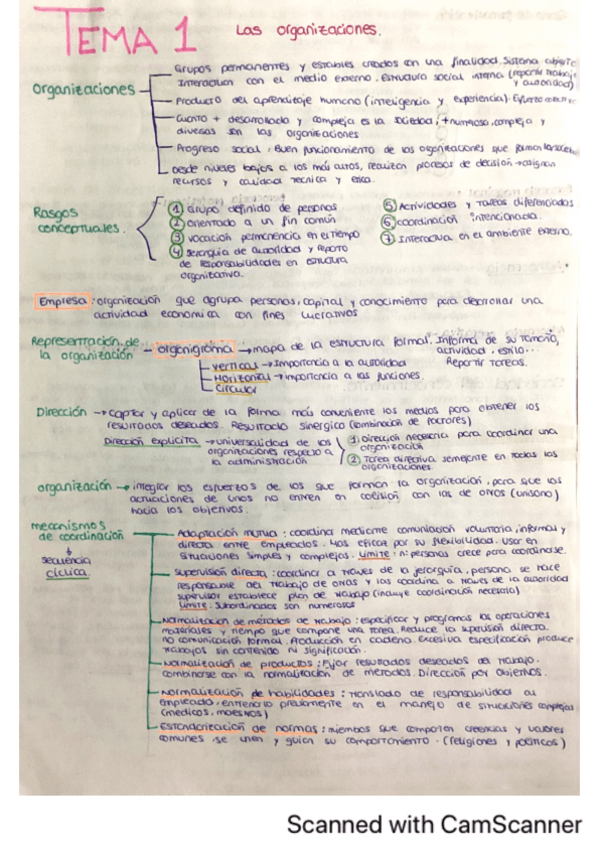 TEMA 1
Las organizaciones.
Organizaciones
Grupos permanentes y estables creados con una finalidad. Sistema abierto
Interacción con el medio externo. Estructura social interna (repartir trabajo
y autoridad)
Producto del aprendizaje humano (inteligencia y experiencia). Esfuerzo
Cuanto + desarrollada y compleja es la sociedad, + numerosa, compleja y
diversas son las organizaciones
Progreso social, Buen funcionamiento de las organizaciones que forman la sociedad
Desde niveles bajos a los más altos, realizan procesos de decisión → asignan
recursos y calidad técnica y ética.
Rasgos
conceptuales.
① Grupo definido de personas
② orientado a un fin común
③ vocación permanencia en el tiempo
④ Jerarquía de autoridad y reparto
de responsabilidades en estructura
organizativa.
⑤ Actividades y tareas diferenciadas
⑥ coordinación intencionada.
⑦ Interactua en el ambiente externo.
Empresa: organización que agrupa personas, capital y conocimiento para desarrollar una
actividad económica con fines lucrativos
Representación de
la organización
organigrama → mapa de la estructura formal. Informa de su tamaño,
actividad, estilo...
Repartir tareas.
Vertical → importancia a la autoridad
Horizontal → importancia a las funciones.
Circular
Dirección → captar y aplicar de la forma más conveniente los medios para obtener los
resultados deseados. Resultado sinérgico (combinación de factores)
Dirección explícita → universalidad de las
organizaciones respecto a
la administración
① Dirección necesaria para coordinar una
organización
② Tarea directiva semejante en todas las
organizaciones.
organización → integrar los esfuerzos de los que forman la organización, para que las
actuaciones de unos no entren en colisión con las de otros (unísono)
hacia los objetivos.
mecanismos
de coordinación
↓
secuencia
cíclica.
Adaptación mutua: coordina mediante comunicación voluntaria, informal y
directa entre empleados. Más eficaz por su flexibilidad. Usar en
situaciones simples y complejas. Límite: nº personas crece para coordinarse.
Supervisión directa: coordinar a través de la jerarquía, persona se hace
responsable del trabajo de otras y las coordina a través de la autoridad
supervisor establece plan de trabajo (incluye coordinación necesaria)
Límite: Subordinados son numerosos
Normalización de métodos de trabajo: especificar y programas las operaciones
materiales y tiempo que compone una tarea. Reduce la supervisión directa.
no comunicación formal. Producción en cadena. Excesiva especificación produce
trabajos sin contenido ni significación.
Normalización de productos: Fijar resultados deseados del trabajo.
combinarse con la normalización de métodos. Dirección por objetivos.
Normalización de habilidades: traslado de responsabilidad al
empleado, entrenarlo previamente en el manejo de situaciones complejas
(médicos, maestros)
Estandarización de normas: miembros que comparten creencias y valores
comunes se unen y guían su comportamiento. (religiones y políticos)
Scanned with CamScanner